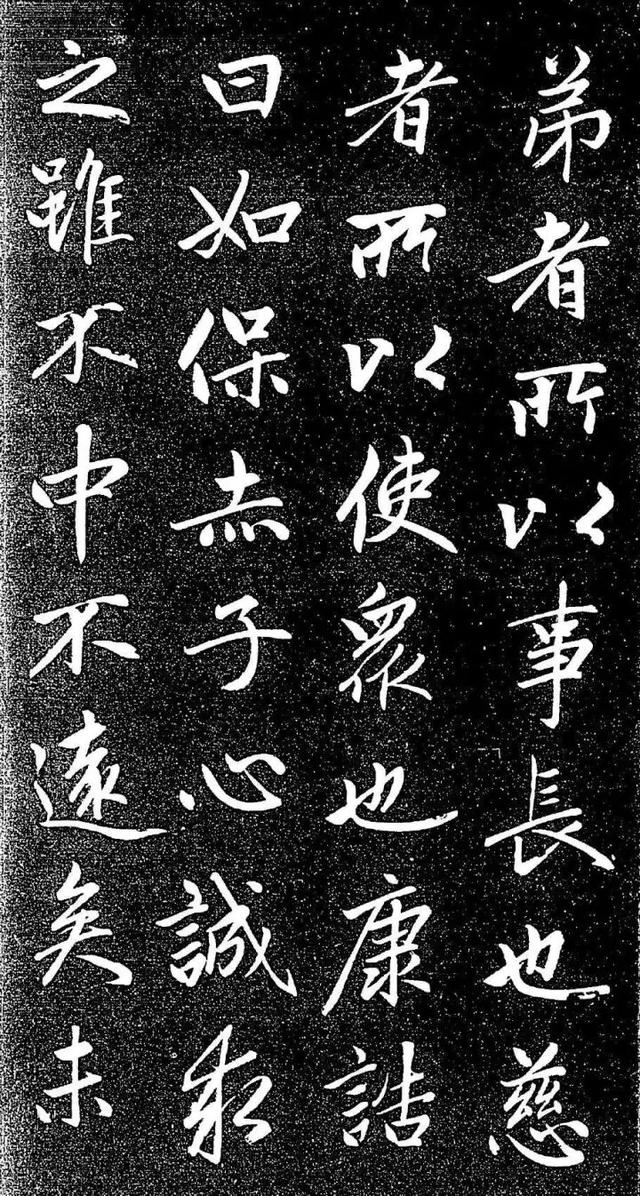 弟者所以事長也慈
者所以使眾也康誥
曰如保赤子心誠求
之雖不中不遠矣未